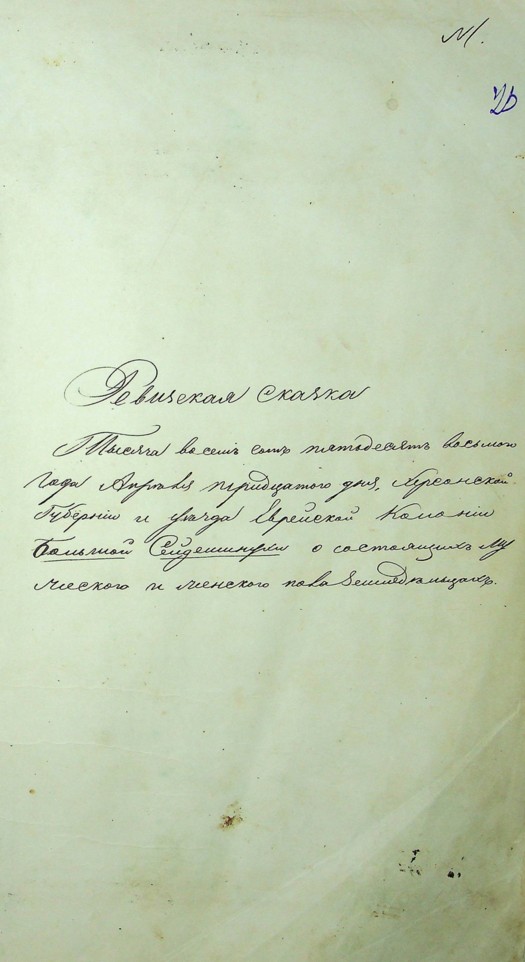 М.
Ревизская сказка
Тысяча восемь сотъ пятьдесятъ восьмого
года Апреля тридцатого дня, Херсонской
Губерніи и уѣзда Еврейской Колоніи
Большой Сейдеминухи о состоящихъ му
жеского и женского пола Земледѣльцахъ.